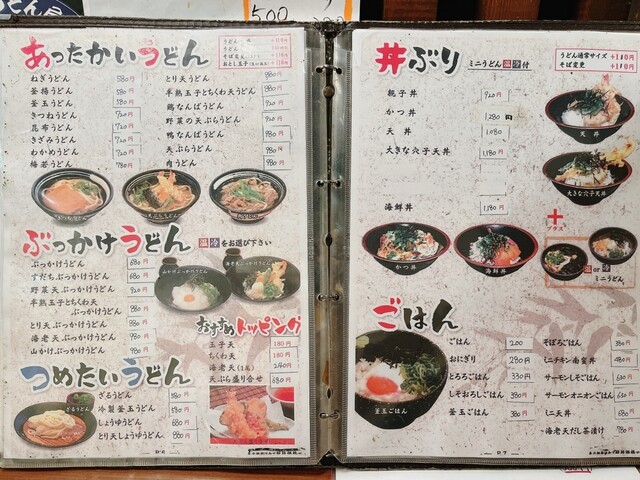 500
あったかいうどん
ねぎうどん 580円
釜揚うどん 580円
釜玉うどん 580円
きつねうどん 920円
昆布うどん 920円
きざみうどん 920円
わかめうどん 920円
梅若うどん 780円
とり天うどん 880円
半熟玉子とちくわ天うどん 880円
鶏なんばうどん 880円
野菜の天ぷらうどん 980円
鴨なんばうどん 980円
天ぷらうどん 980円
肉うどん 980円
ぶっかけうどん 温 冷 をお選び下さい
ぶっかけうどん 680円
すだちぶっかけうどん 680円
野菜天ぶっかけうどん 920円
半熟玉子とちくわ天
ぶっかけうどん 880円
とり天ぶっかけうどん 880円
海老天ぶっかけうどん 980円
山かけぶっかけうどん 880円
山かけぶっかけうどん
海老天ぶっかけうどん
おすすめトッピング
玉子天 180円
ちくわ天 180円
海老天(1尾) 240円
天ぷら盛り合せ 680円
つめたいうどん
ざるうどん
ざるうどん 580円
冷製釜玉うどん 580円
しょうゆうどん 680円
とり天しょうゆうどん 880円
丼ぶり ミニうどん 温 冷 付
うどん通常サイズ +110円
そば変更 +110円
親子丼 920円
かつ丼 1,280円
天丼 1,080円
大きな穴子天丼 1,180円
海鮮丼 1,180円
天丼
大きな穴子天丼
かつ丼
海鮮丼
+
プラス
温 or 冷
ミニうどん
ごはん
釜玉ごはん
ごはん 200円
おにぎり 280円
とろろごはん 330円
しそおろしごはん 380円
釜玉ごはん 380円
そぼろごはん 380円
ミニチキン南蛮丼 480円
サーモンしそごはん 630円
サーモンオニオンごはん 630円
ミニ天丼 680円
海老天だし茶漬け 780円